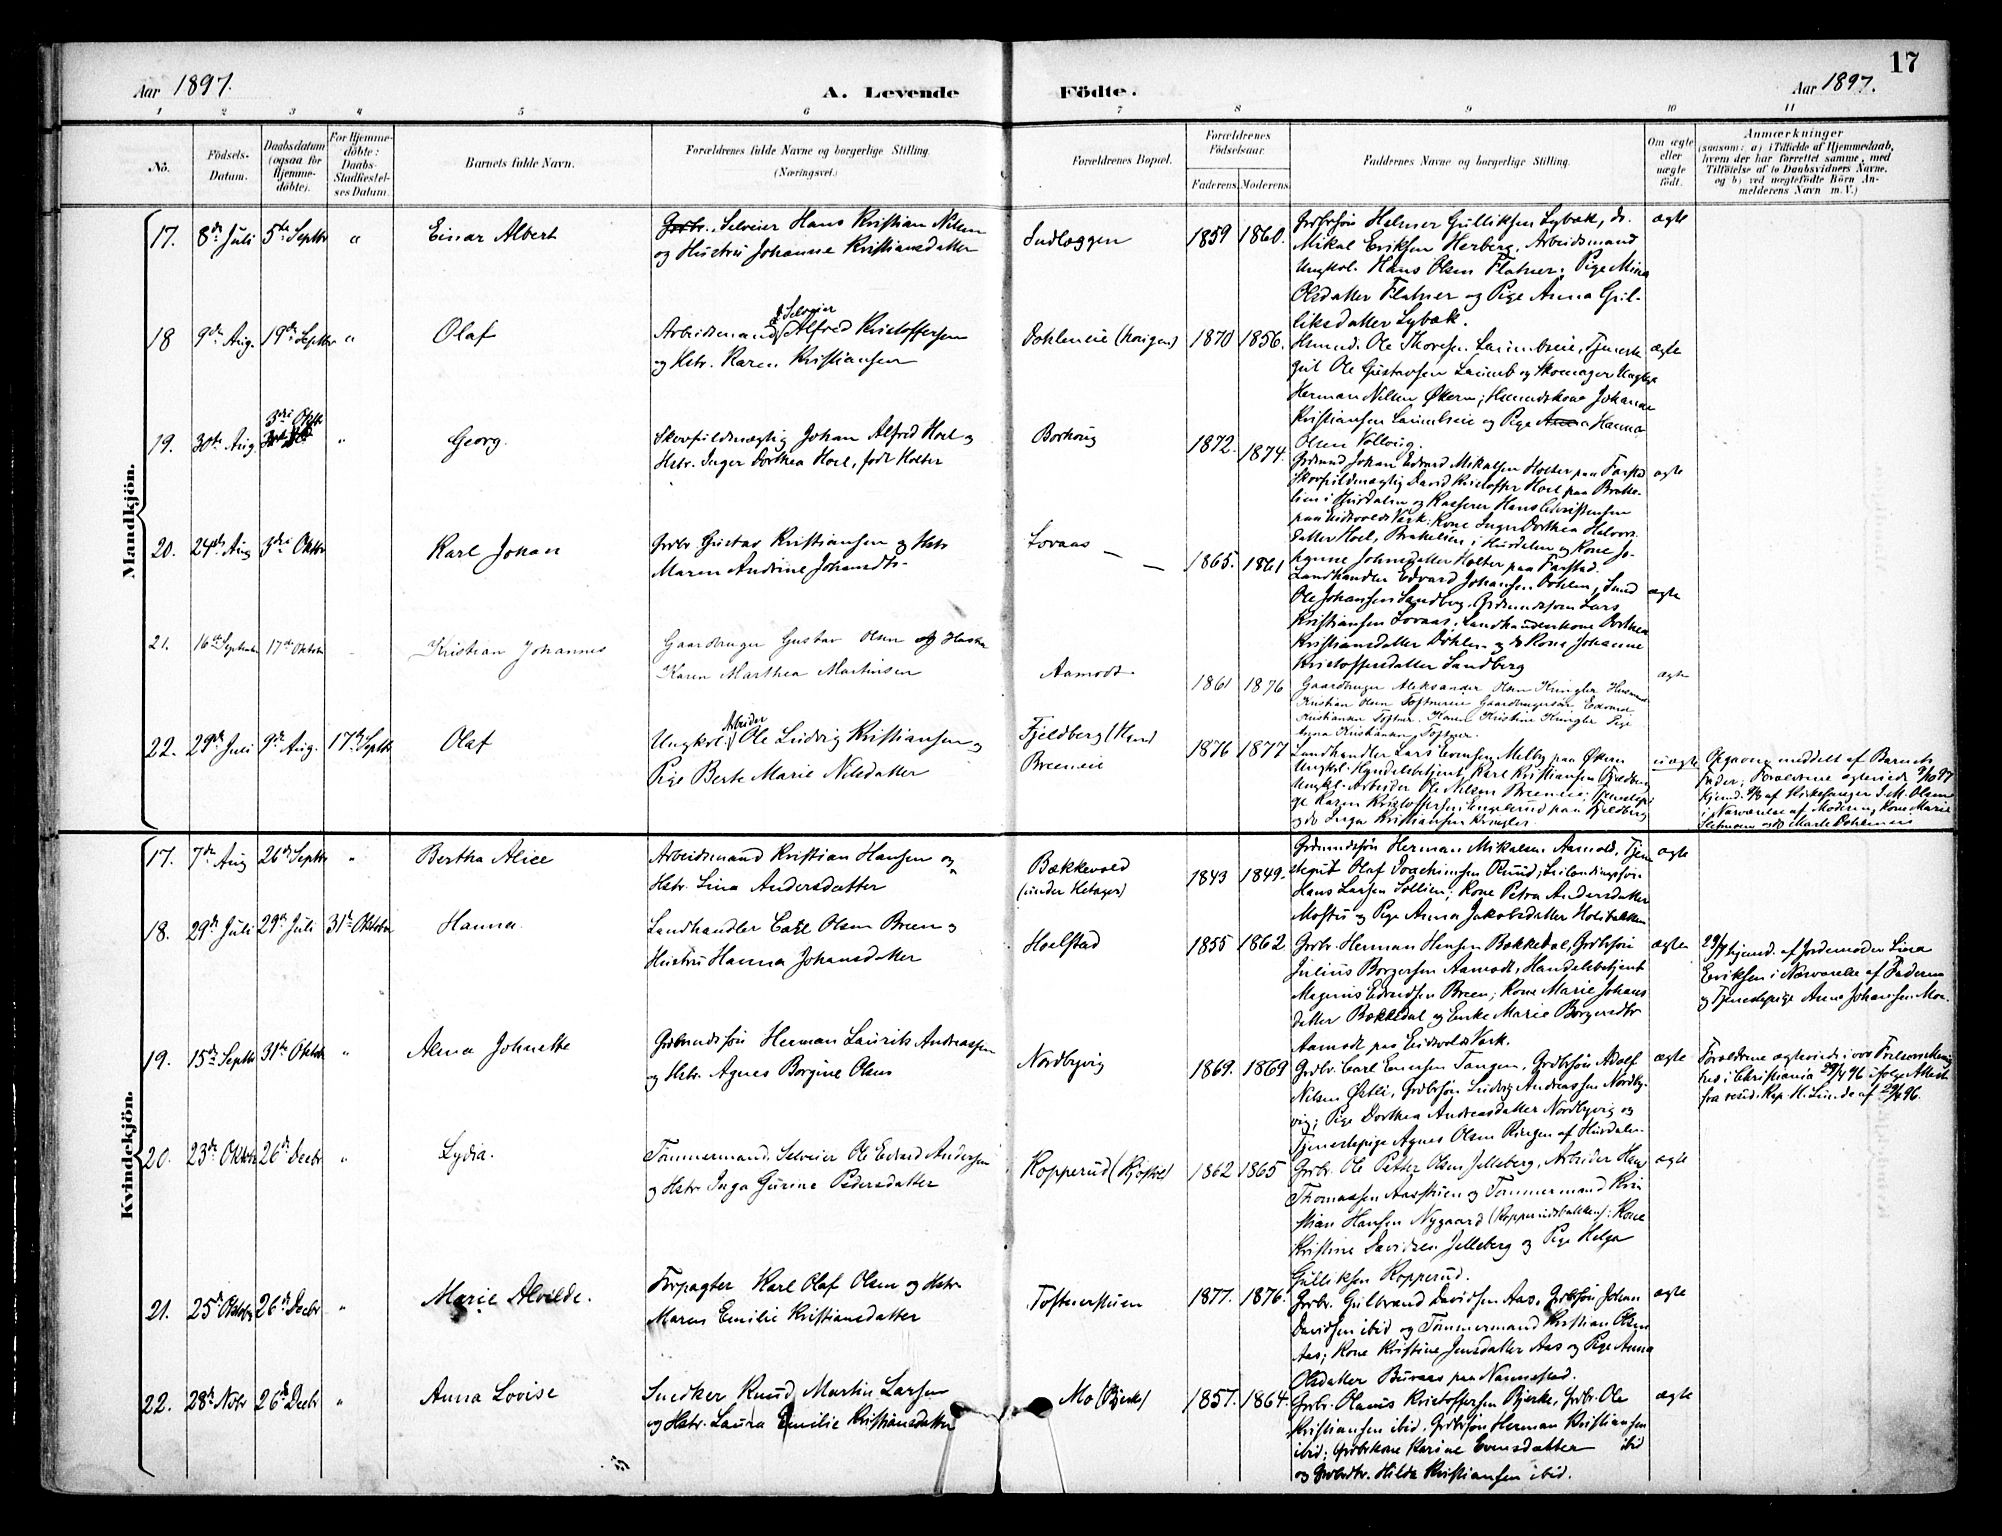 17
Aar 1897.
A. Levende Födte.
Aar 1897.
1 2 3 4 5 6 7 8 9 10 11
No.
Födsels-Datum.
Daabsdatum (ogsaa for Hjemme-döbte).
For Hjemme-döbte: Daabs-Stadfæstel-ses Datum.
Barnets fulde Navn.
Forældrenes fulde Navne og borgerlige Stilling. (Næringsvei.)
Forældrenes Bopæl.
Forældrenes Födselsaar.
Faderens. Moderens.
Faddernes Navne og borgerlige Stilling.
Om ægte eller uægte födt.
Anmærkninger
(saasom: a) i Tilfælde af Hjemmedaab, hvem der har forrettet samme, med Tilföielse af to Daabsvidners Navne. og b) ved uægtefödte Börn Anmelderens Navn m. V.)
Mandkjön.
17. 8de Juli 5te Septbr " Einar Albert
Grdbr. Selveier Hans Kristian Nilsen
og Hustru Johanne Kristiansdatter
1859 1860.
Grdbrsøn Helmer Gulliksen Lybæk, do.
Mikal Eriksen Herberg, Arbeidsmand
Ungkal. Hans Olsen Flatner; Pige Mina
Olsdatter Flatner og Pige Anna Gul-
liksdatter Lybæk.
ægte
18 9de Aug. 19de Septbr " Olaf
Arbeidsmand & Selveier Alfred Kristoffersen
og Hstr. Karen Kristiansen
1870 1856.
Husmd. Ole Thoresen Laumbseie, Tjeneste
gut Ole Gustavsen Laumb og Skomager Ungkar
Herman Nilsen Økern; Husmdskone Johanne
Kristiansen Laumbseie og Pige Hanna
Olsen Vollaug.
ægte
19. 30te Aug. 3die Oktbr " Georg.
Skovfuldmægtig Johan Alfred Hoel og
Hstr. Inger Dorthea Hoel, født Holter
1872. 1874.
Grdmand Johan Edvard Mikalsen Holter paa Farstad
Skovfuldmægtig David Kristoffer Hoel paa Brakelien i Hurdalen og Kasserer Hans Christensen
paa Eidsvolds Værk; Kone Inger Dorthea Halvorsdatter Hoel, Brakelien i Hurdalen og Kone Johanne Johnsdatter Holter paa Farstad.
ægte
20. 24de Aug 3die Oktbr Karl Johan
Grdbr Gustav Kristiansen og Hstr
Maren Andrine Johansdtr.
Lovaas
1865. 1861
Landhandler Edvard Johansen Dohlen, Smed
Ole Johansen Sandberg, Grdmandssøn Lars
Kristiansen Lovaas; Landhandlerkone Dorthea
Kristiansdatter Dohlen og do Kone Johanne
Kristoffersdatter Sandberg
ægte
21. 16de September 17de Oktober Kristian Johannes
Gaardbruger Gustav Olsen og Hustru
Karen Marthea Martinsen
Aamodt
1861 1876
Gaardbruger Aleksander Olsen Kringler Husmand
Kristian Olsen Toftnereie Gaardbrugersøn Edvard
Kristiansen Toftner. Karen Kristine Kringler Pige
Anna Kristiansen Toftner.
ægte
22. 29de Juli 9de Aug. 17de Septbr Olaf
Ungkal. Arbeider Ole Ludvig Kristiansen og
Pige Berte Marie Nilsdatter
Fjeldberg (Ham)
Breeneie
1876 1877
Landhandler Lars Evensen Melby paa Økern
Ungkl. Handelsbetjent Karl Kristiansen Fjeldberg
Ungkl. Arbeider Ole Nilsen Breeneie; Tjenestepige Karen Kristoffersen Engelsrud paa Fjeldberg
og do Inga Kristiansen Kringler.
uægte
Opgaven meddelt af Barnets
Fader; Forældrene
hjemd. af Kirkesanger J. M. Olsen
i Nærværelse af Moderen, Kone Marie
Kvindekjön.
17. 7de Aug 26de Septbr " Bertha Alice
Arbeidsmand Kristian Hansen og
Hstr. Lina Andersdatter
Bækkevold
(under Hetager)
1843 1849.
Grdmandssøn Herman Mikalsen Aamodt, Tjene
stegut Olaf Joachimsen Ruud; Leilændingssøn
Hans Larsen Sollien; Kone Petra Andersdatter
Mostu og Pige Anna Jakobsdatter Holtbakken
ægte
18. 29de Juli 29de Juli 31te Oktober Hanna.
Landhandler Carl Olsen Breen og
Hustru Hanna Johansdatter
Hoelstad
1855 1862
Grdbr. Herman Hansen Bækkedal, Grdbrsøn
Julius Borgersen Aamodt, Handelsbetjent
Magnus Edvardsen Breen; Kone Marie Johans
datter Bækkedal og Enke Marie Borgersdtr
Aamodt paa Eidsvolds Værk.
ægte
29/7 hjemd. af Jordemoder Lina
Eriksen i Nærværelse af Faderen
og Tjenestepige Anne Johansen Moe.
19. 15de Septbr 31te Oktbr " Alma Johnette
Grdmandssøn Herman Laurits Andreassen
og Hstr. Agnes Borgine Olsens
Nordbyvig
1869. 1869
Grdbr. Carl Evensen Tangen, Grdbrsøn Adolf
Nilsen Østli, Grdbrsøn Ludvig Andreassen Nordby-
vig; Pige Dorthea Andreasdatter Nordbyvig og
Tjenestepige Agnes Olsen Ringen af Hurdalen.
ægte
i Christiania
20. 23de Oktbr 26de Decbr " Lydia.
Tømmermand. Selveier Ole Edvard Andersen
og Hstr. Inga Gurine Pedersdatter
Kopperud (Kjosbø)
1862 1865
Grdbr. Ole Petter Olsen Jelleberg, Arbeider Hans
Thomassen Aasstuen og Tømmermand Kri
stian Hansen Nygaard (Kopperudsbakken); Kone
Kristine Davidsen Jelleberg og Pige Helga
Gulliksen Kopperud.
ægte
21. 25de Oktober 26de Decbr " Marie Alvilde.
Forpagter Karl Olaf Olsen og Hstr
Maren Emilie Kristiansdatter
Toftnerstuen
1877. 1876.
Grdbr. Gulbrand Davidsen Aas, Grdbrsøn Johan
Davidsen ibid og Tømmermand Kristian Olsen
Aas; Kone Kristine Jensdatter Aas og Pige Anna
Olsdatter Buraas paa Nannestad.
ægte
22. 28de Novbr 26de Decbr " Anna Lovise
Snedker Knud Martin Larsen
og Hstr. Laura Emilie Kristiansdatter
Mo (Bjerke)
1857. 1864.
Grdbr. Olaus Kristoffersen Bjerke, Grdbr. Ole
Kristiansen ibid, Grdbrsøn Herman Kristiansen
ibid; Grdbrkone Karine Evensdatter ibid
og Grdbrdtr. Hilda Kristiansen ibid.
ægte